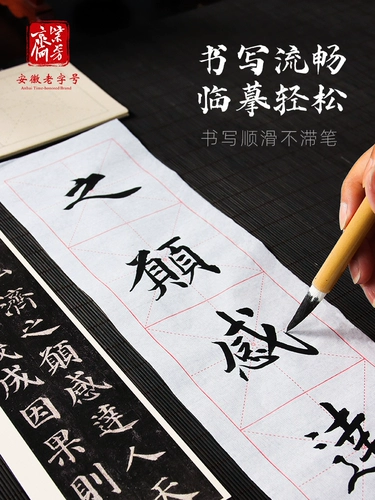 安徽老字号
Anhui Time-honored Brand
书写流畅
临摹轻松
书写顺滑不滞笔
之顛感達
濟之顛感達人天
成因果則